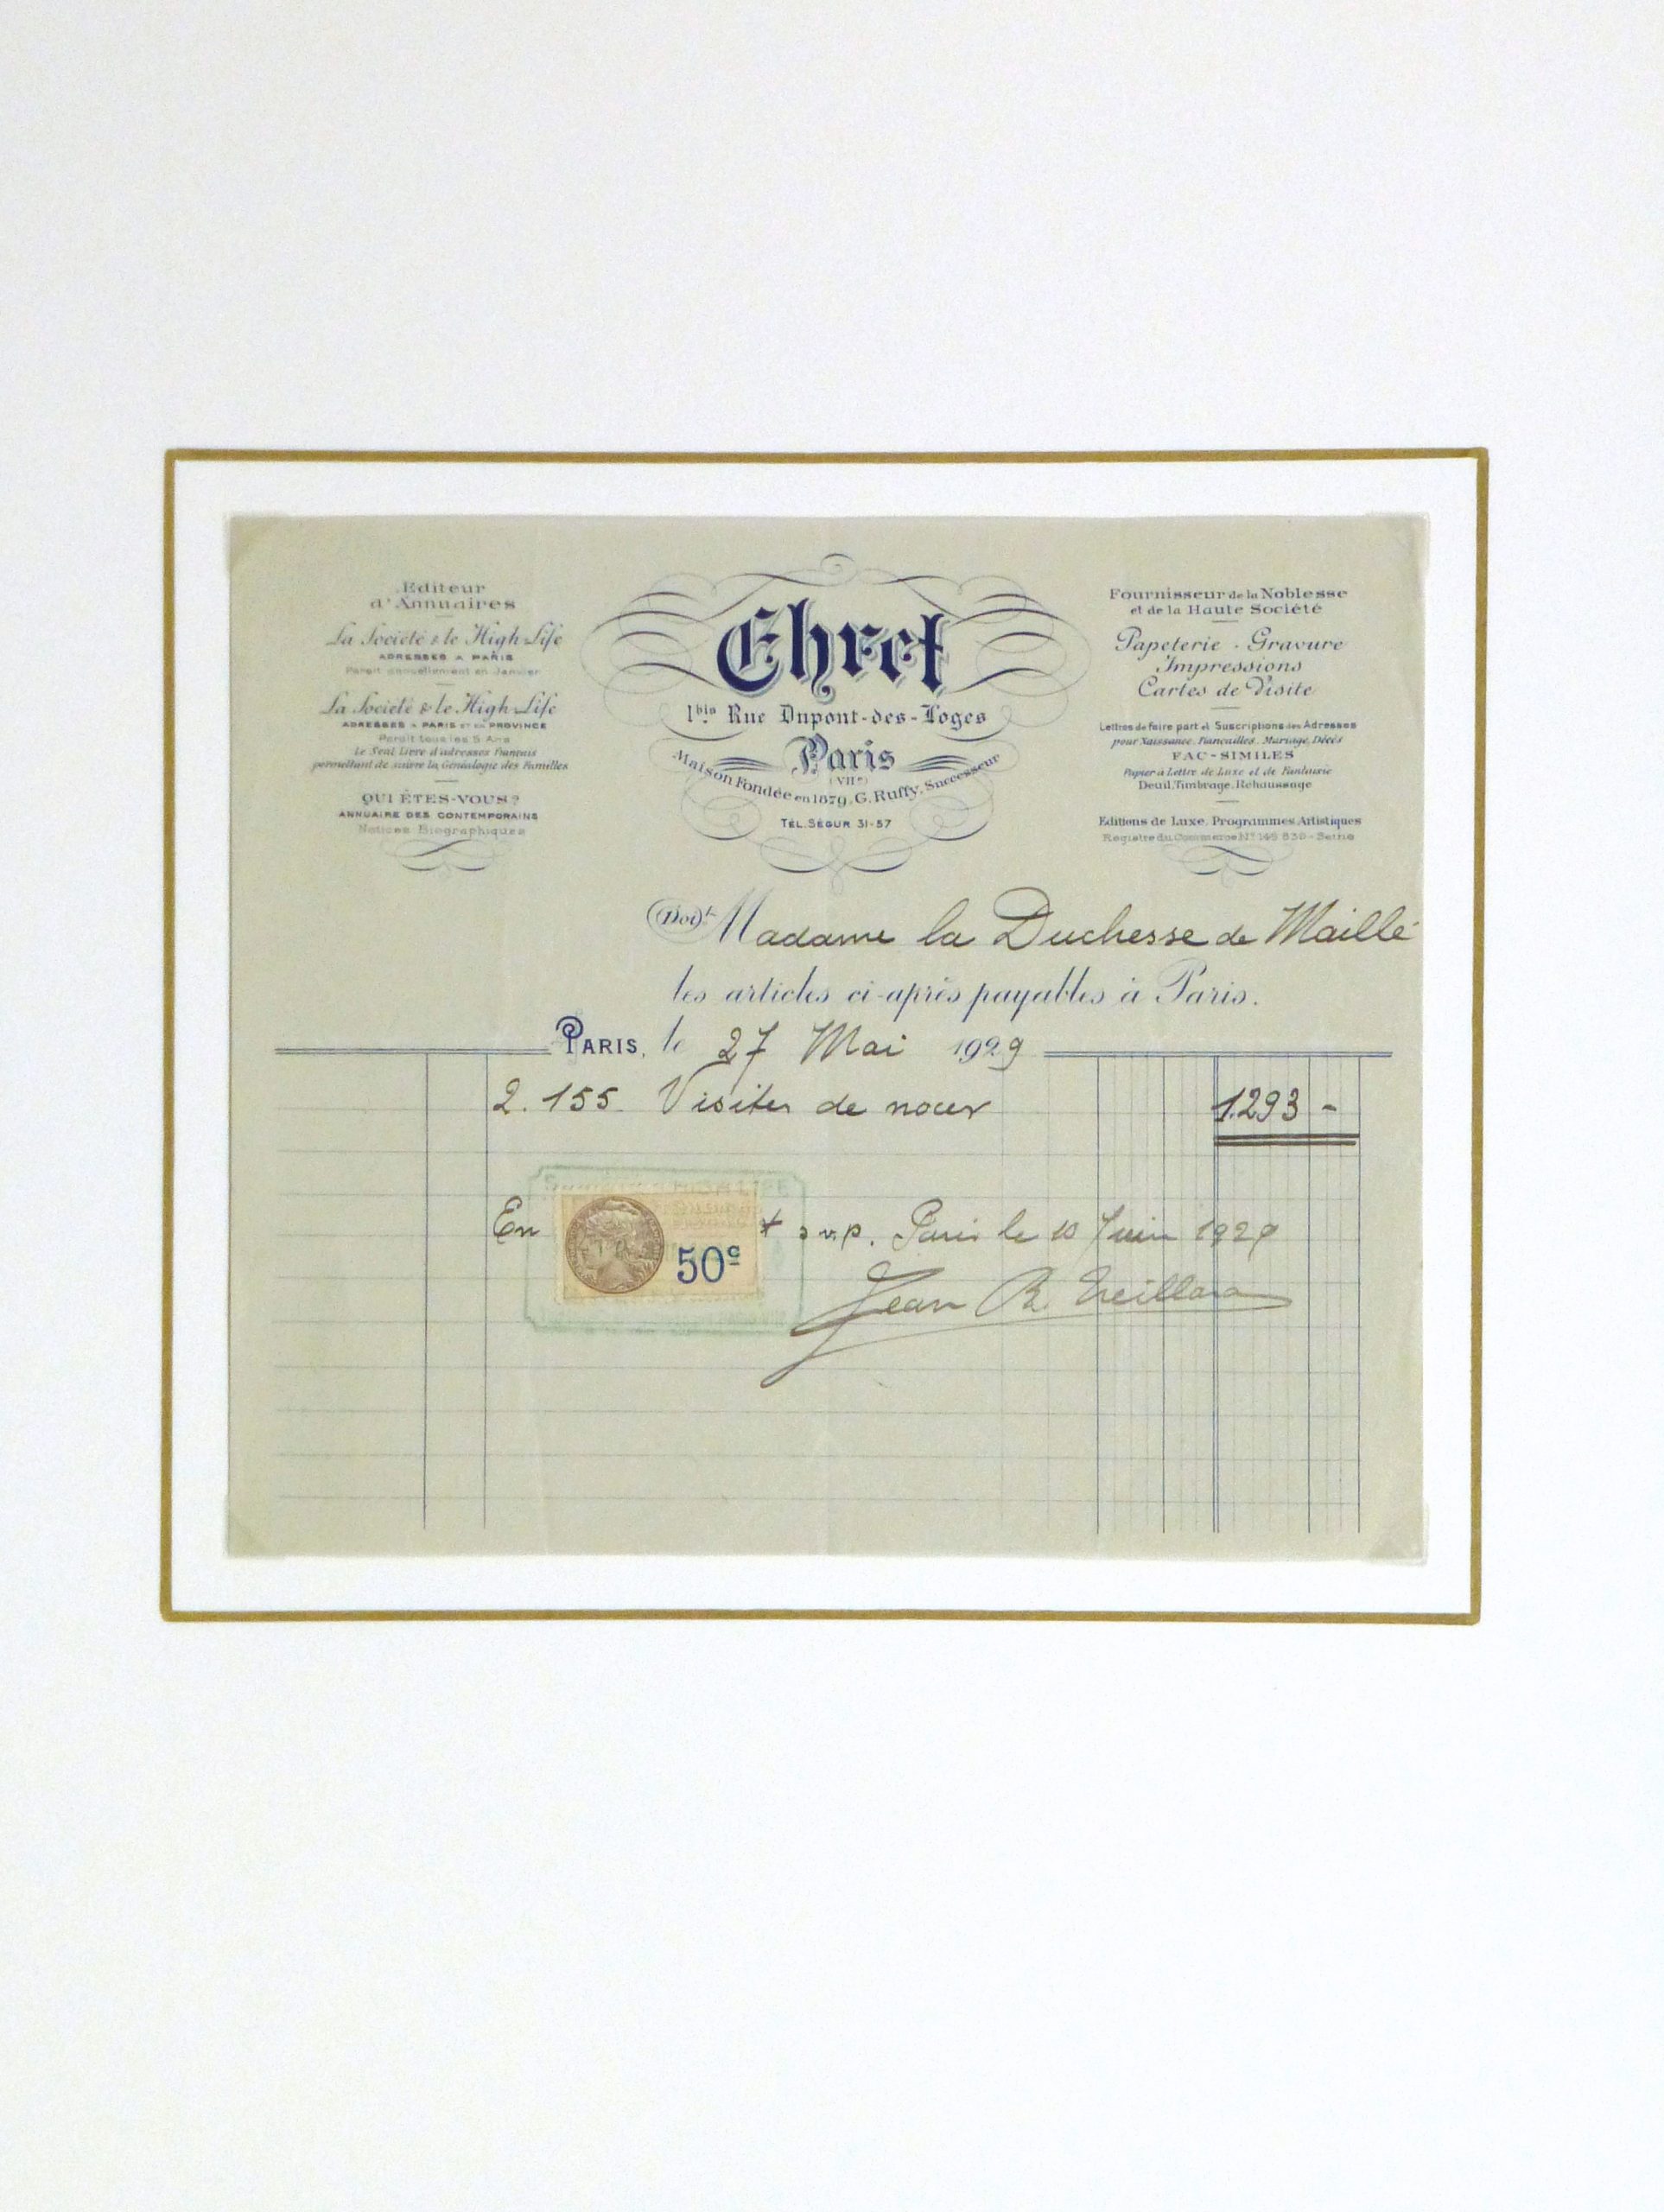 Editeur
d'Annuaires
La Société & le High-Life
ADRESSES A PARIS
Parait annuellement en Janvier
La Société & le High-Life
ADRESSES A PARIS ET EN PROVINCE
Parait tous les 5 Ans
Le Seul Livre d'adresses Français
permettant de suivre la Généalogie des Familles
QUI ÊTES-VOUS?
ANNUAIRE DES CONTEMPORAINS
Notices Biographiques
Ehret
1bis Rue Dupont-des-Loges
Paris
(VIIe)
Maison Fondée en 1879. G. Ruffy. Successeur
TÉL. SÉGUR 31-57
Fournisseur de la Noblesse
et de la Haute Société
Papeterie - Gravure
Impressions
Cartes de Visite
Lettres de faire part et Suscriptions des Adresses
pour Naissance, Fiançailles, Mariage, Décès
FAC-SIMILES
Papier à Lettre de Luxe et de Fantaisie
Deuil, Timbrage, Rehaussage
Editions de Luxe, Programmes Artistiques
Registre du Commerce No 145 830 - Seine
Doit Madame la Duchesse de Maillé
les articles ci-après payables à Paris.
PARIS, le 27 Mai 1929
2.155 Visites de noces 1.293 -
HIGH LIFE
50c
En t s.v.p. Paris le 10 Juin 1929
Jean